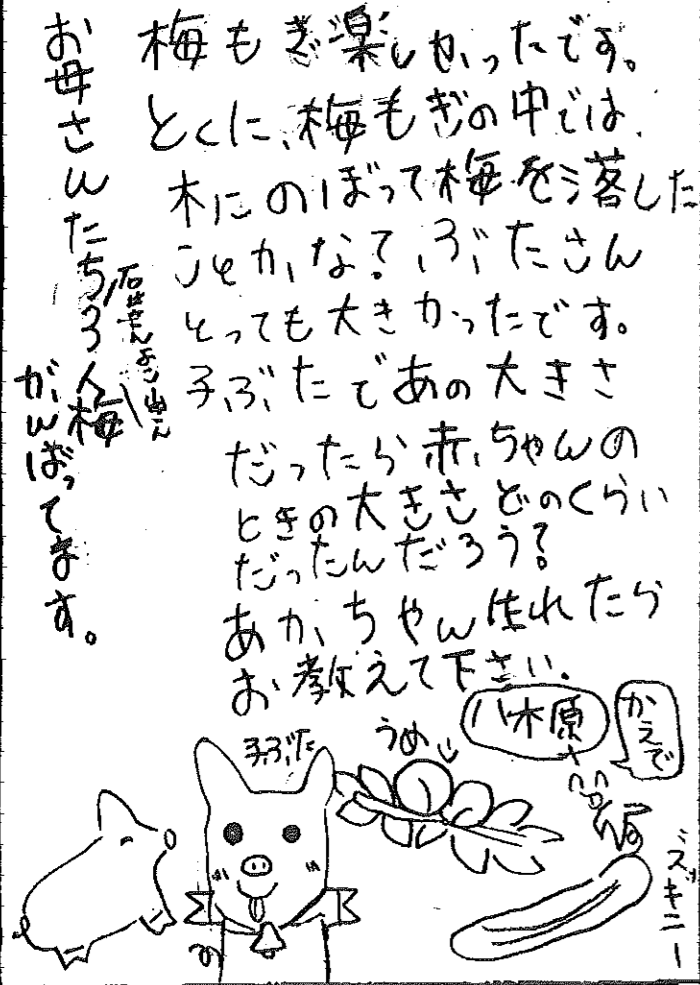 梅もぎ楽しかったです。
とくに、梅もぎの中では、
木にのぼって梅を落した
ことかな?ぶたさん
とっても大きかったです。
子ぶたであの大きさ
だったら赤ちゃんの
ときの大きさどのくらい
だったんだろう?
あかちゃん生れたら
お教えて下さい。
お母さんたち3人梅
がんばってます。
八木原
かえで
子ぶた
うめ
ズッキニー